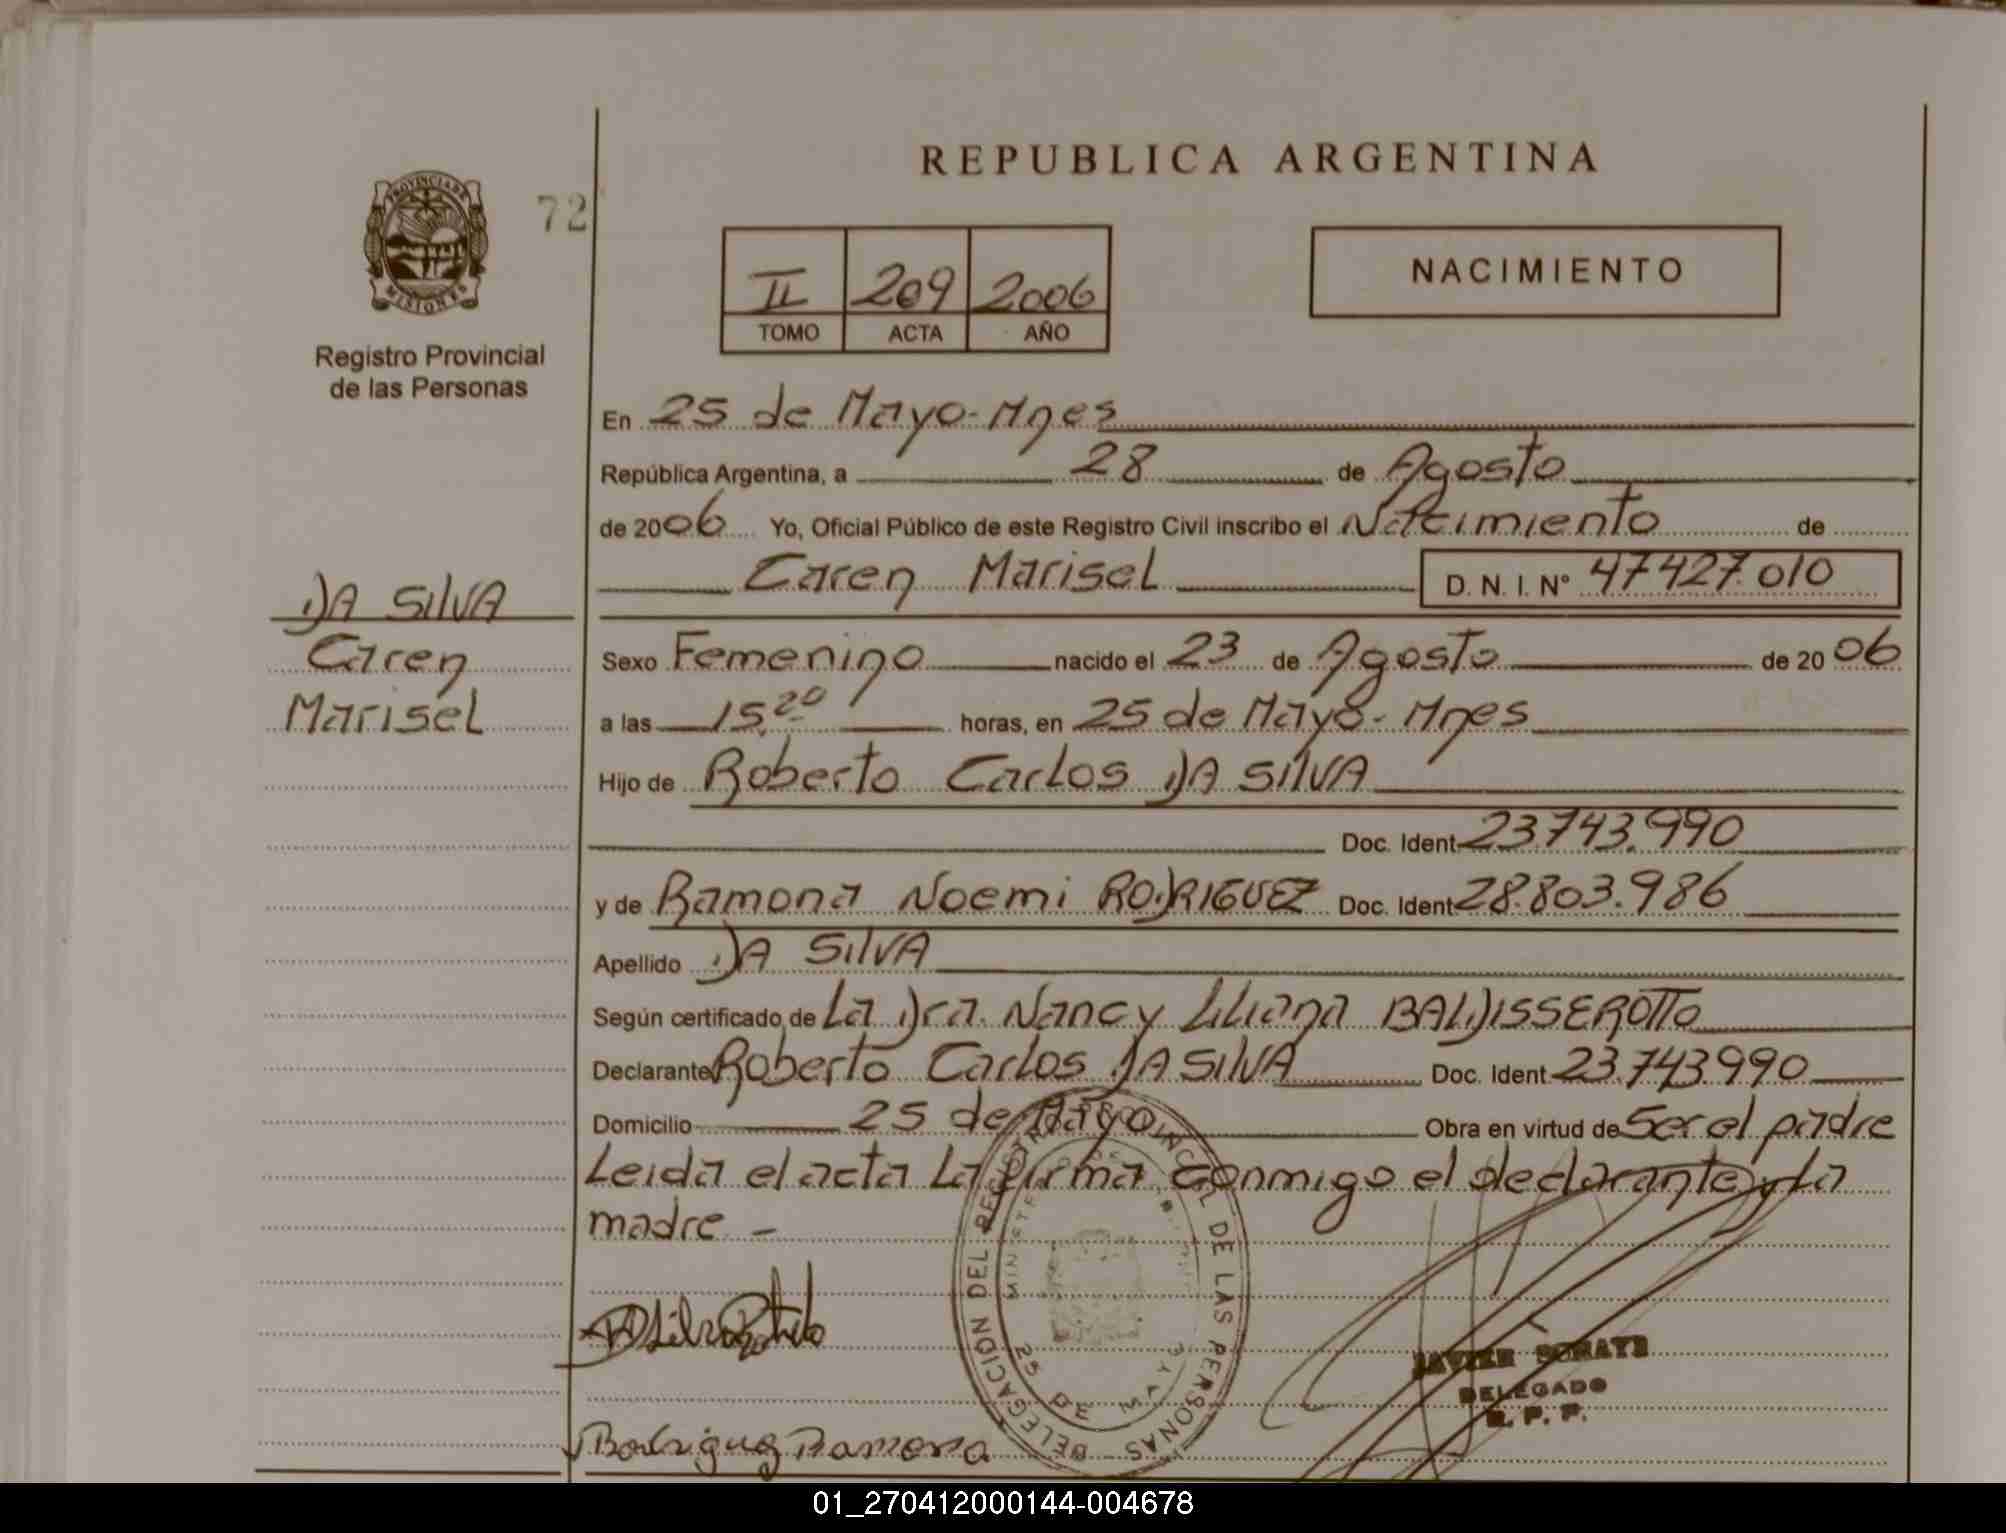 REPUBLICA ARGENTINA
PROVINCIA DE
MISIONES
72
Registro Provincial
de las Personas
II 209 2006
TOMO ACTA AÑO
NACIMIENTO
En 25 de Mayo-Mnes
República Argentina, a 28 de Agosto
de 2006 Yo, Oficial Público de este Registro Civil inscribo el Nacimiento de
Caren Marisel D. N. I. Nº 47427.010
DA SILVA
Caren
Marisel
Sexo Femenino nacido el 23 de Agosto de 2006
a las 15,20 horas, en 25 de Mayo-Mnes
Hijo de Roberto Carlos DA SILVA
Doc. Ident 23.743.990
y de Ramona Noemi RODRIGUEZ Doc. Ident 28.803.986
Apellido DA SILVA
Según certificado de La Dra. Nancy Liliana BALDISSEROTTO
Declarante Roberto Carlos DA SILVA Doc. Ident 23.743.990
Domicilio 25 de Mayo Obra en virtud de Ser el padre
Leida el acta La firma conmigo el declarante y La
madre -
DELEGACION DEL REGISTRO PROVINCIAL DE LAS PERSONAS
25 DE MAYO
JAVIER
DELEGADO
R. P. P.
Rodriguez Ramona
01_270412000144-004678